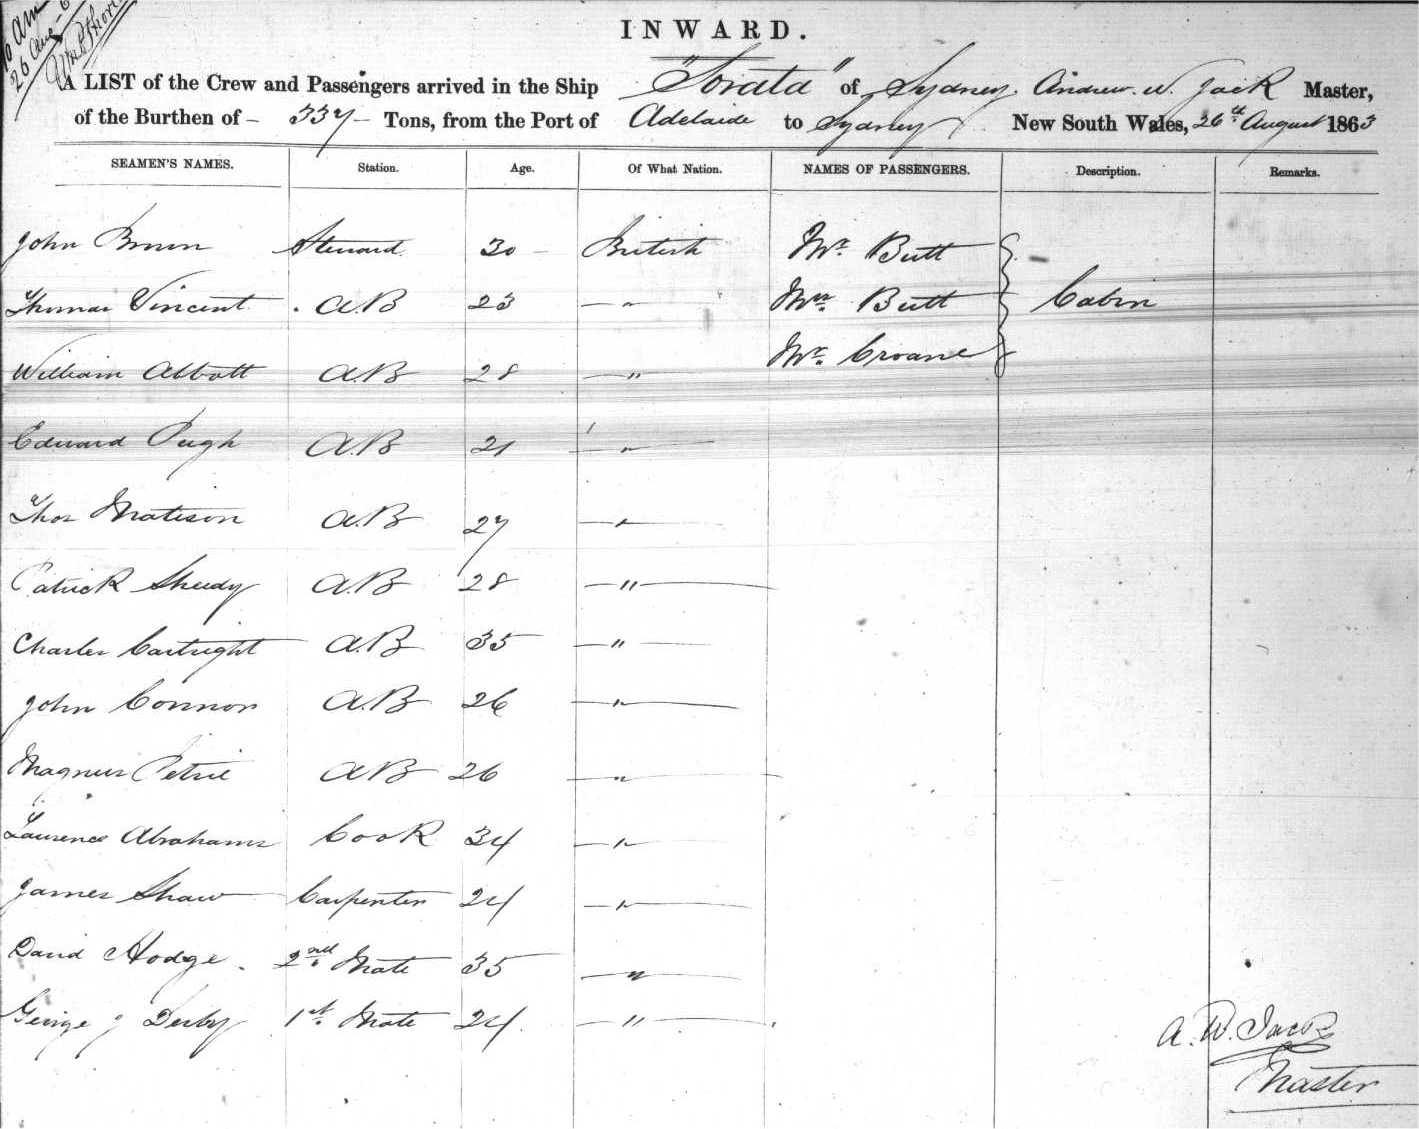 10 am
26 Aug
INWARD.
A LIST of the Crew and Passengers arrived in the Ship "Sorata" of Sydney. Andrew. W. Jack Master,
of the Burthen of - 337 - Tons, from the Port of Adelaide to Sydney New South Wales, 26th August 1863
SEAMEN'S NAMES. Station. Age. Of What Nation. NAMES OF PASSENGERS. Description. Remarks.
John Brown Steward 30 - British Mr. Butt
Thomas Vincent . A.B 23 - " - Mrs. Butt Cabin
William Abbott A.B 28 - " - Mr. Croane
Edward Pugh A.B 21 - " -
Thos Matison A.B 27 - " -
Patrick Sheedy A.B 28 - " -
Charles Cartright A.B 35 - " -
John Connor A.B 26 - " -
Magnus Petrie AB 26 - " -
Laurence Abrahams Cook 34 - " -
James Shaw Carpenter 24 - " -
David Hodge. 2nd. Mate 35 - " -
George J Derby 1st. Mate 24. - " -
A. W. Jack
Master